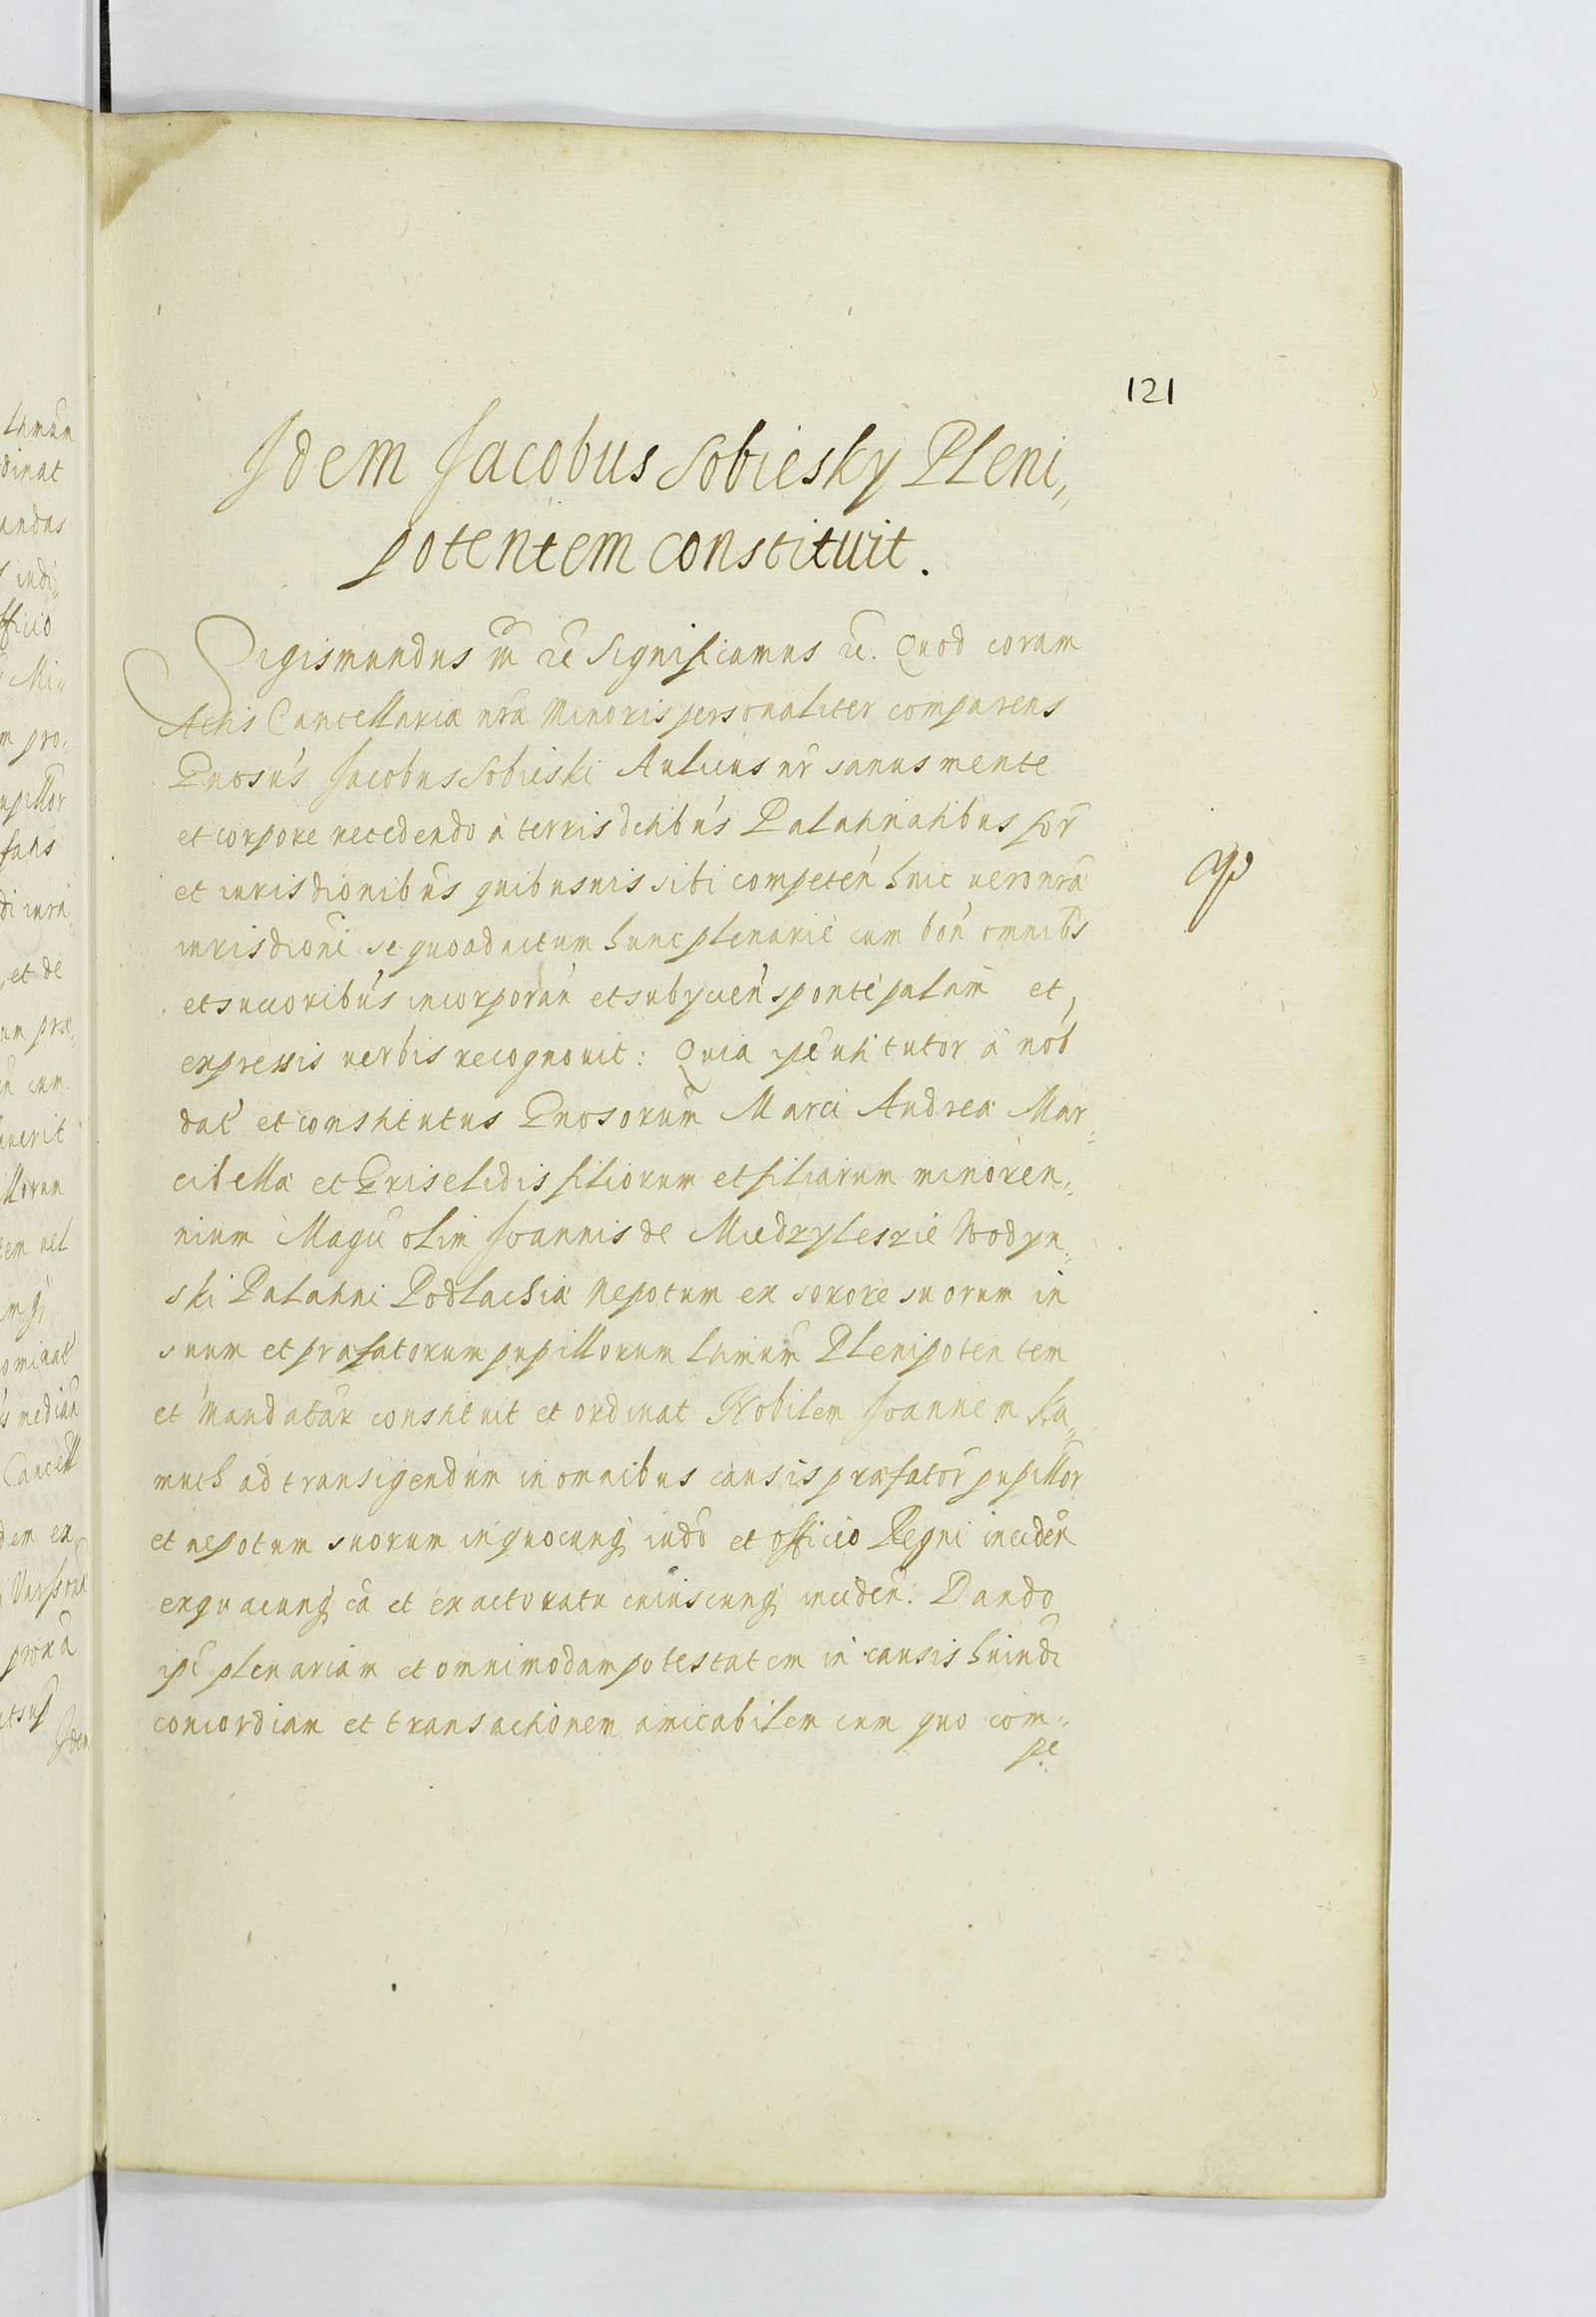 121
Idem Jacobus Sobiesky Pleni„
potentem constituit.
Sigismundus III etc Significamus etc. Quod coram
Actis Cancellariæ nrã Minoris personaliter comparens
Gnosus Jacobus Sobieski Aulicus nr sanus mente
et corpore recedendo à terris dctibus Palatinatibus for
et iurisdionibus quibusuis sibi competen huic uero nrã
iurisdioni se quoad actum hunc plenarie cum bon omnibs
et succoribus incorporan et subycien sponte palam et
expressis uerbis recognouit: Quia ipe uti tutor à nob
dat et constitutus Gnosorum Marci Andreæ Mar„
cibellæ et Griselidis filiorum et filiarum minoren„
nium Magci olim Joannis de Miedzyleszie Wodyn„
ski Palatini Podlachiæ Nepotum ex sorore suorum in
suum et præfatorum pupillorum Ltimum Plenipotentem
et Mandatar constituit et ordinat Nobilem Joannem Ka„
much ad transigendum in omnibus causis præfator pupillor
et nepotum suorum in quocunq iudo et officio Regni inciden
ex quacunq cã et ex actoratu cuiuscunq inciden. Dando
ipi plenariam et omnimodam potestatem in causis huiudi
concordiam et transactionem amicabilem cum quo com„
pe